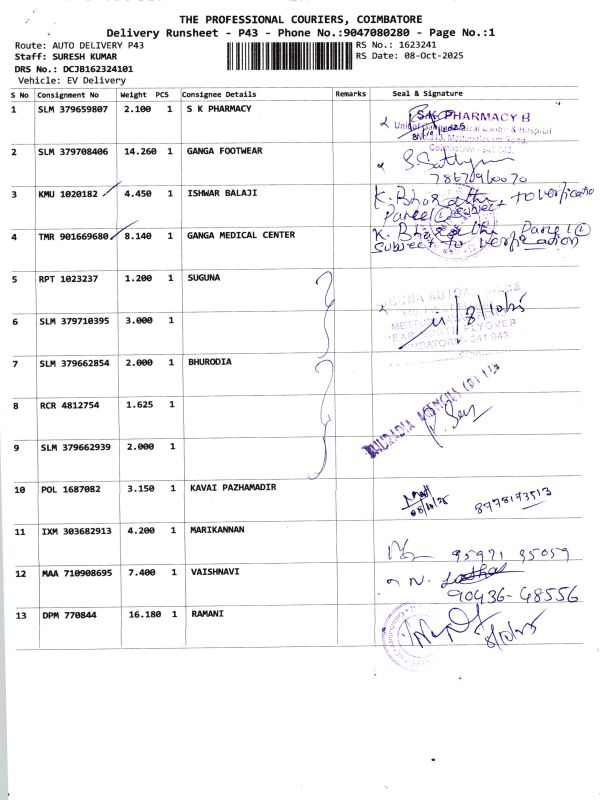 THE PROFESSIONAL COURIERS, COIMBATORE
Delivery Runsheet - P43 - Phone No.:9047080280 - Page No.:1
Route: AUTO DELIVERY P43 RS No.: 1623241
Staff: SURESH KUMAR RS Date: 08-Oct-2025
DRS No.: DCJB162324101
Vehicle: EV Delivery
S No Consignment No Weight PCS Consignee Details Remarks Seal & Signature
1 SLM 379659807 2.100 1 S K PHARMACY
S.K. PHARMACY
2 SLM 379708406 14.260 1 GANGA FOOTWEAR
Coimbatore - 641 043.
S. Sathya
7867096070
3 KMU 1020182 4.450 1 ISHWAR BALAJI K. Bharathi
Parcel ① subject to verification
4 TMR 901669680 8.140 1 GANGA MEDICAL CENTER K. Bharathi Parcel ①
subject to verification
5 RPT 1023237 1.200 1 SUGUNA
8/10/25
6 SLM 379710395 3.000 1
641 043
7 SLM 379662854 2.000 1 BHURODIA
8 RCR 4812754 1.625 1
BHURADIA AGENCIES (P) LTD
9 SLM 379662939 2.000 1
10 POL 1687082 3.150 1 KAVAI PAZHAMADIR
08/10/25 8978173513
11 IXM 303682913 4.200 1 MARIKANNAN
95971 95059
12 MAA 710908695 7.400 1 VAISHNAVI N.
90436-48556
13 DPM 770844 16.180 1 RAMANI
8/10/25